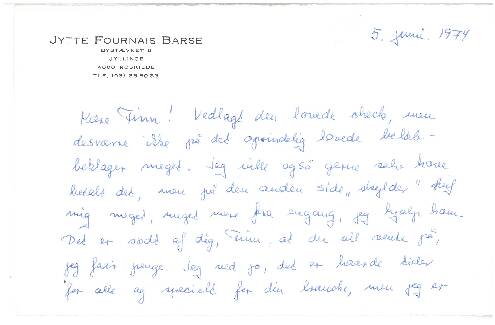 JYTTE FOURNAIS BARSE
BYSTÆVNET 8
JYLLINGE
4000 ROSKILDE
TLF. (03)
5. juni 1974
Kære Finn! Vedlagt den lovede check, men
desværre ikke på det oprindelig lovede beløb -
beklager meget. Jeg ville også gerne selv have
betalt det, men på den anden side "skylder"
mig noget, meget mere fra engang, jeg hjalp ham.
Det er sødt af dig, Finn, at du vil vente på,
jeg får penge. Jeg ved jo, det er hårde tider
for alle og specielt for din branche, men jeg er